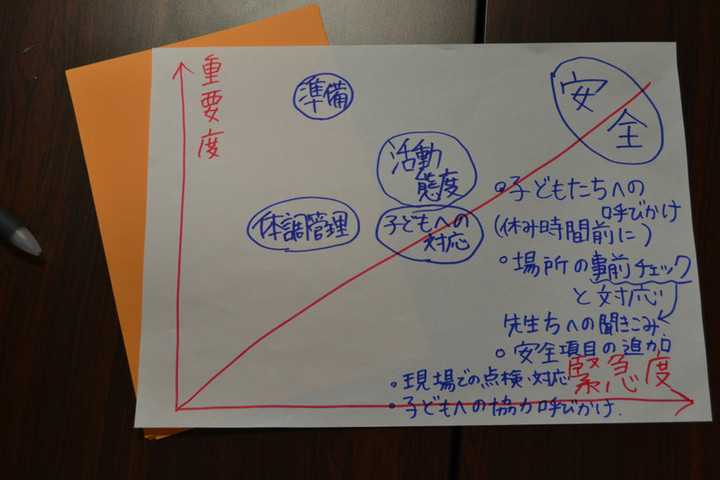 重要度
準備
安全
活動
態度
体調管理
子どもへの
対応
。子どもたちへの
呼びかけ
(休み時間前に)
。場所の事前チェック
と対応
先生方への聞きこみ
。安全項目の追加
。現場での点検・対応
。子どもへの協力呼びかけ.
緊急度